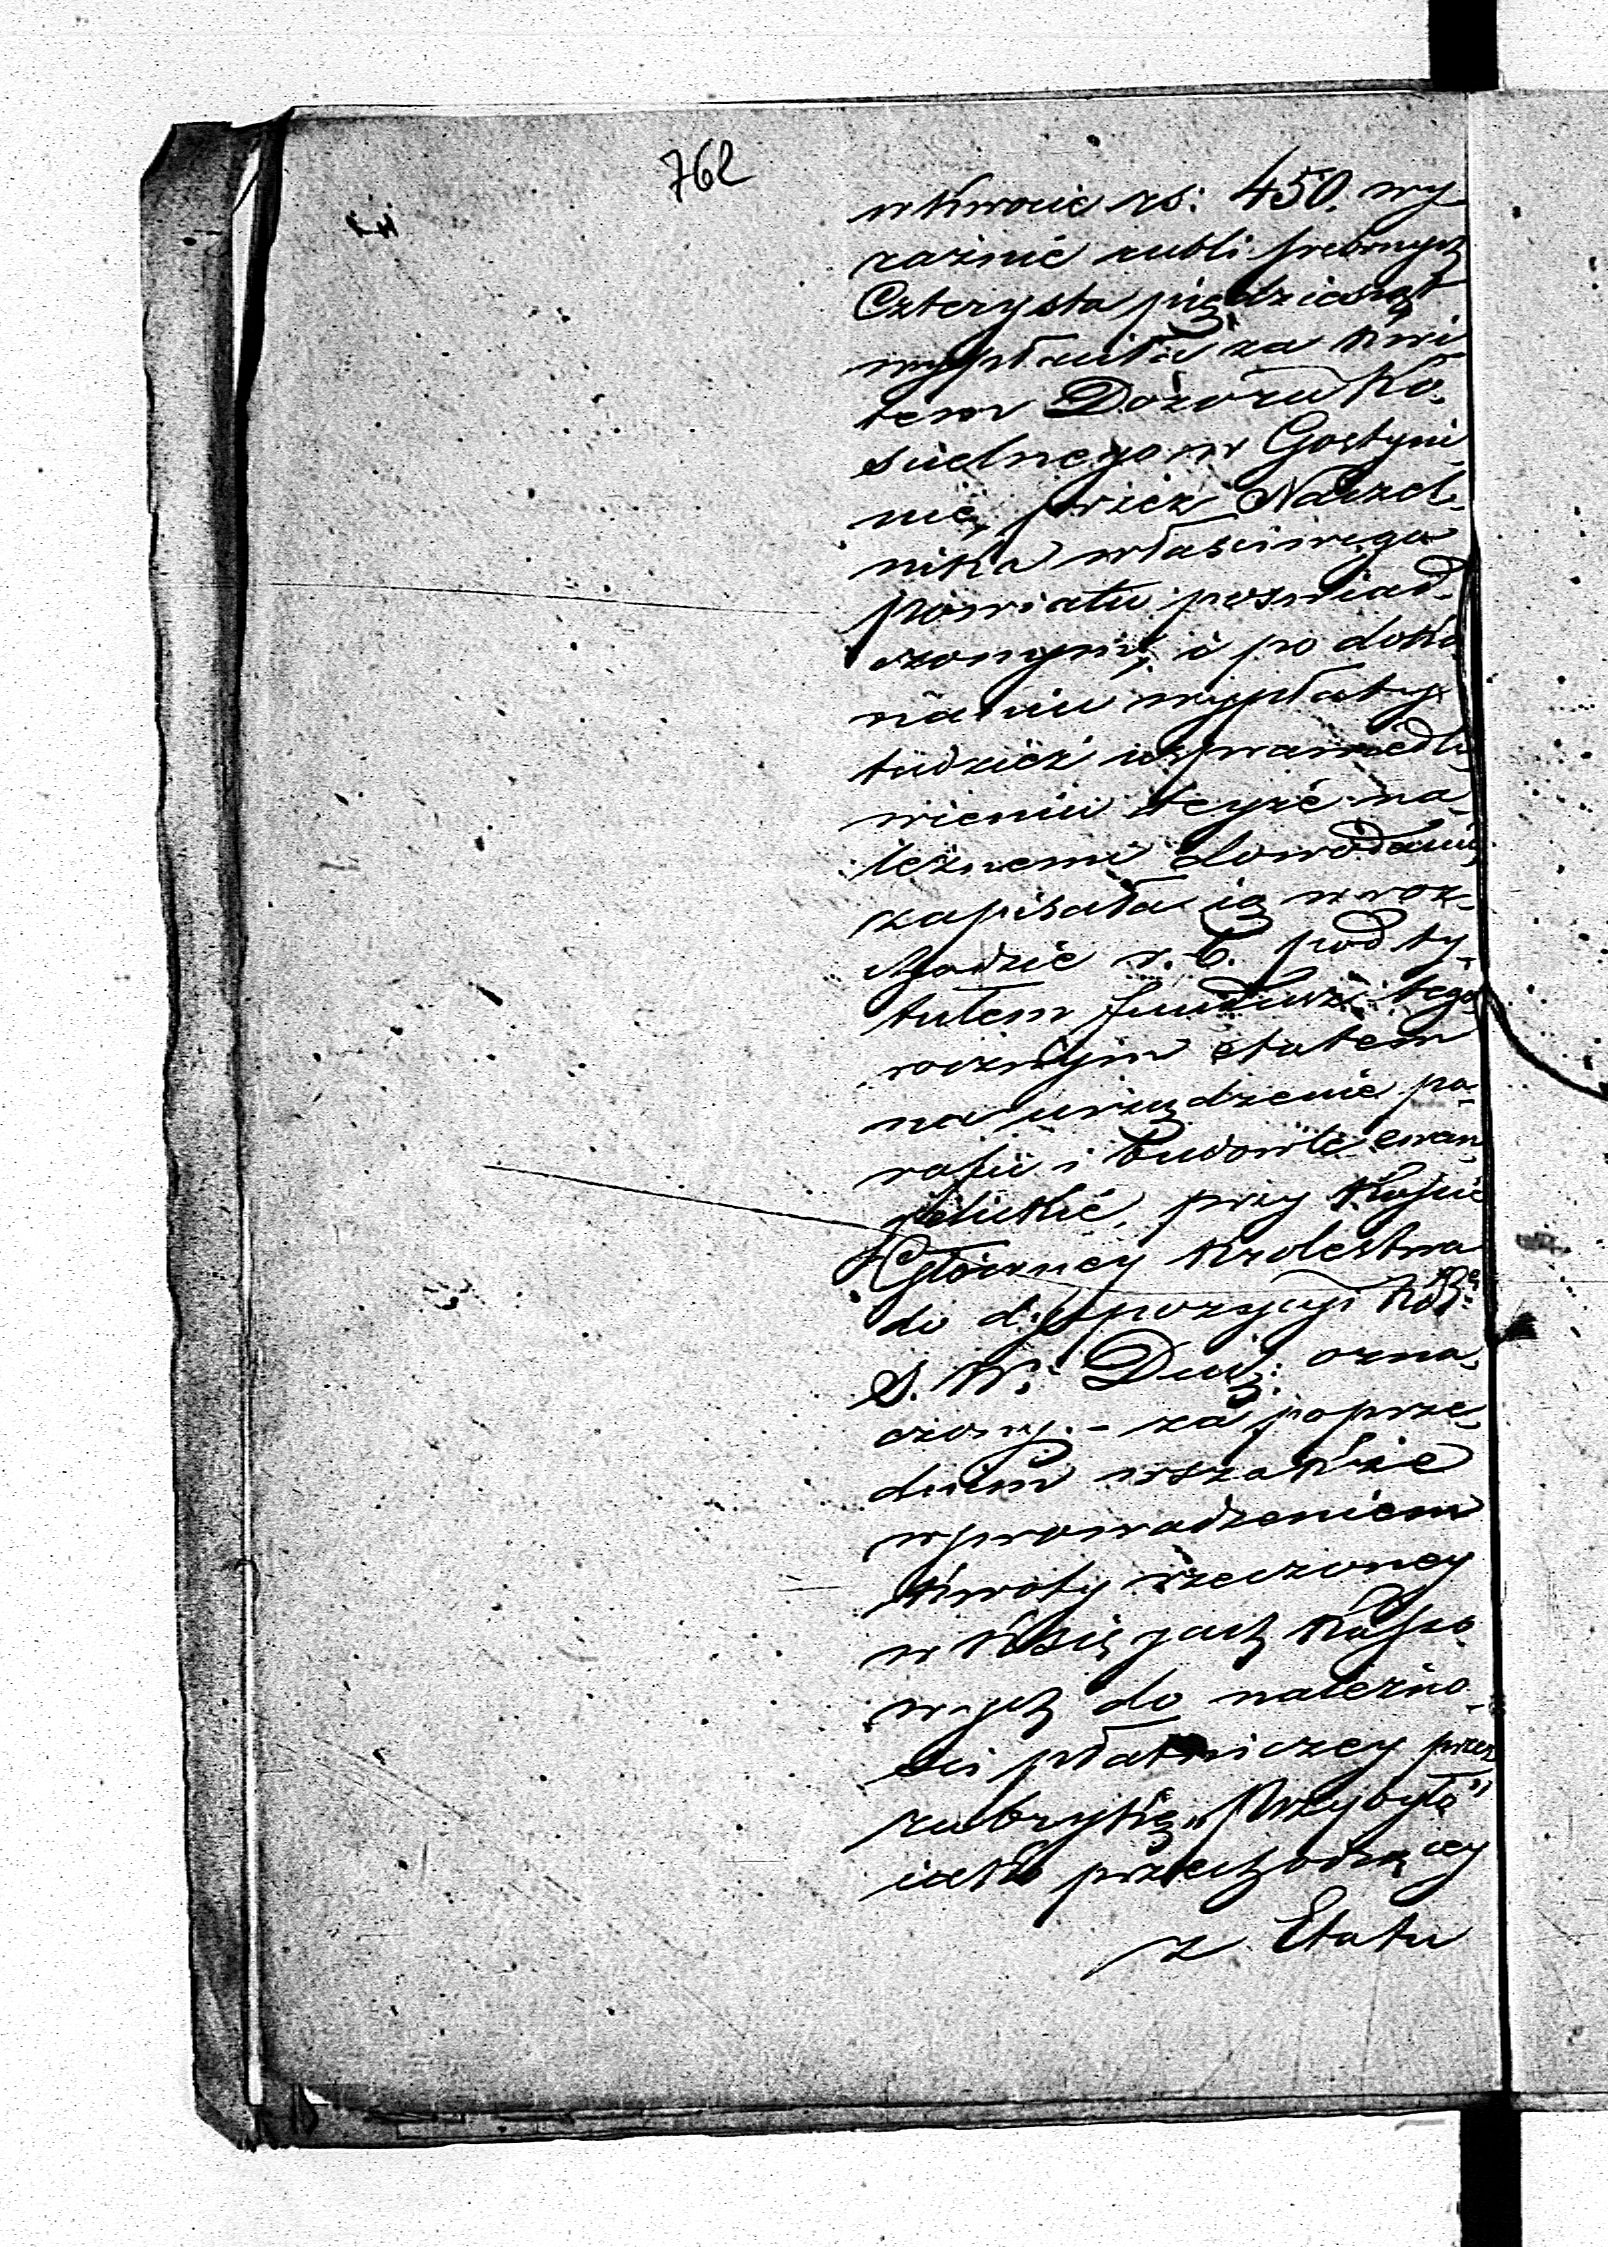 762
w kwocie rs: 450. wy
raźnie rubli srebrnych
Czterysta pięćdziesiąt
wypłaciła za kwi
tem Dozoru Ko,
ścielnego w Gostyni
nie, przez Naczel,
nika właściwego
Powiatu poświad,
czonym, i po doko,
naniu wypłaty
tudzież usprawiedli,
wieniu teyże na,
leżnemi dowodami,
zapisała ią w roz,
chodzie r. b. pod ty,
tułem fundusz tego
rocznym etatem
na urządzenie pa,
rafii i budowle ewan,
gelickie, przy Kassie
Głównej Krolestwa
do dyspozycyi Kom:
S. W. Duch: ozna,
czony. - za poprze,
dniem wszakże
wprowadzeniem
kwoty rzeczoney
w księgach Kasso,
wych do należno,
ści płatniczey przez
rubrykę „Przybyło"
iako przechodzącey
z Etatu